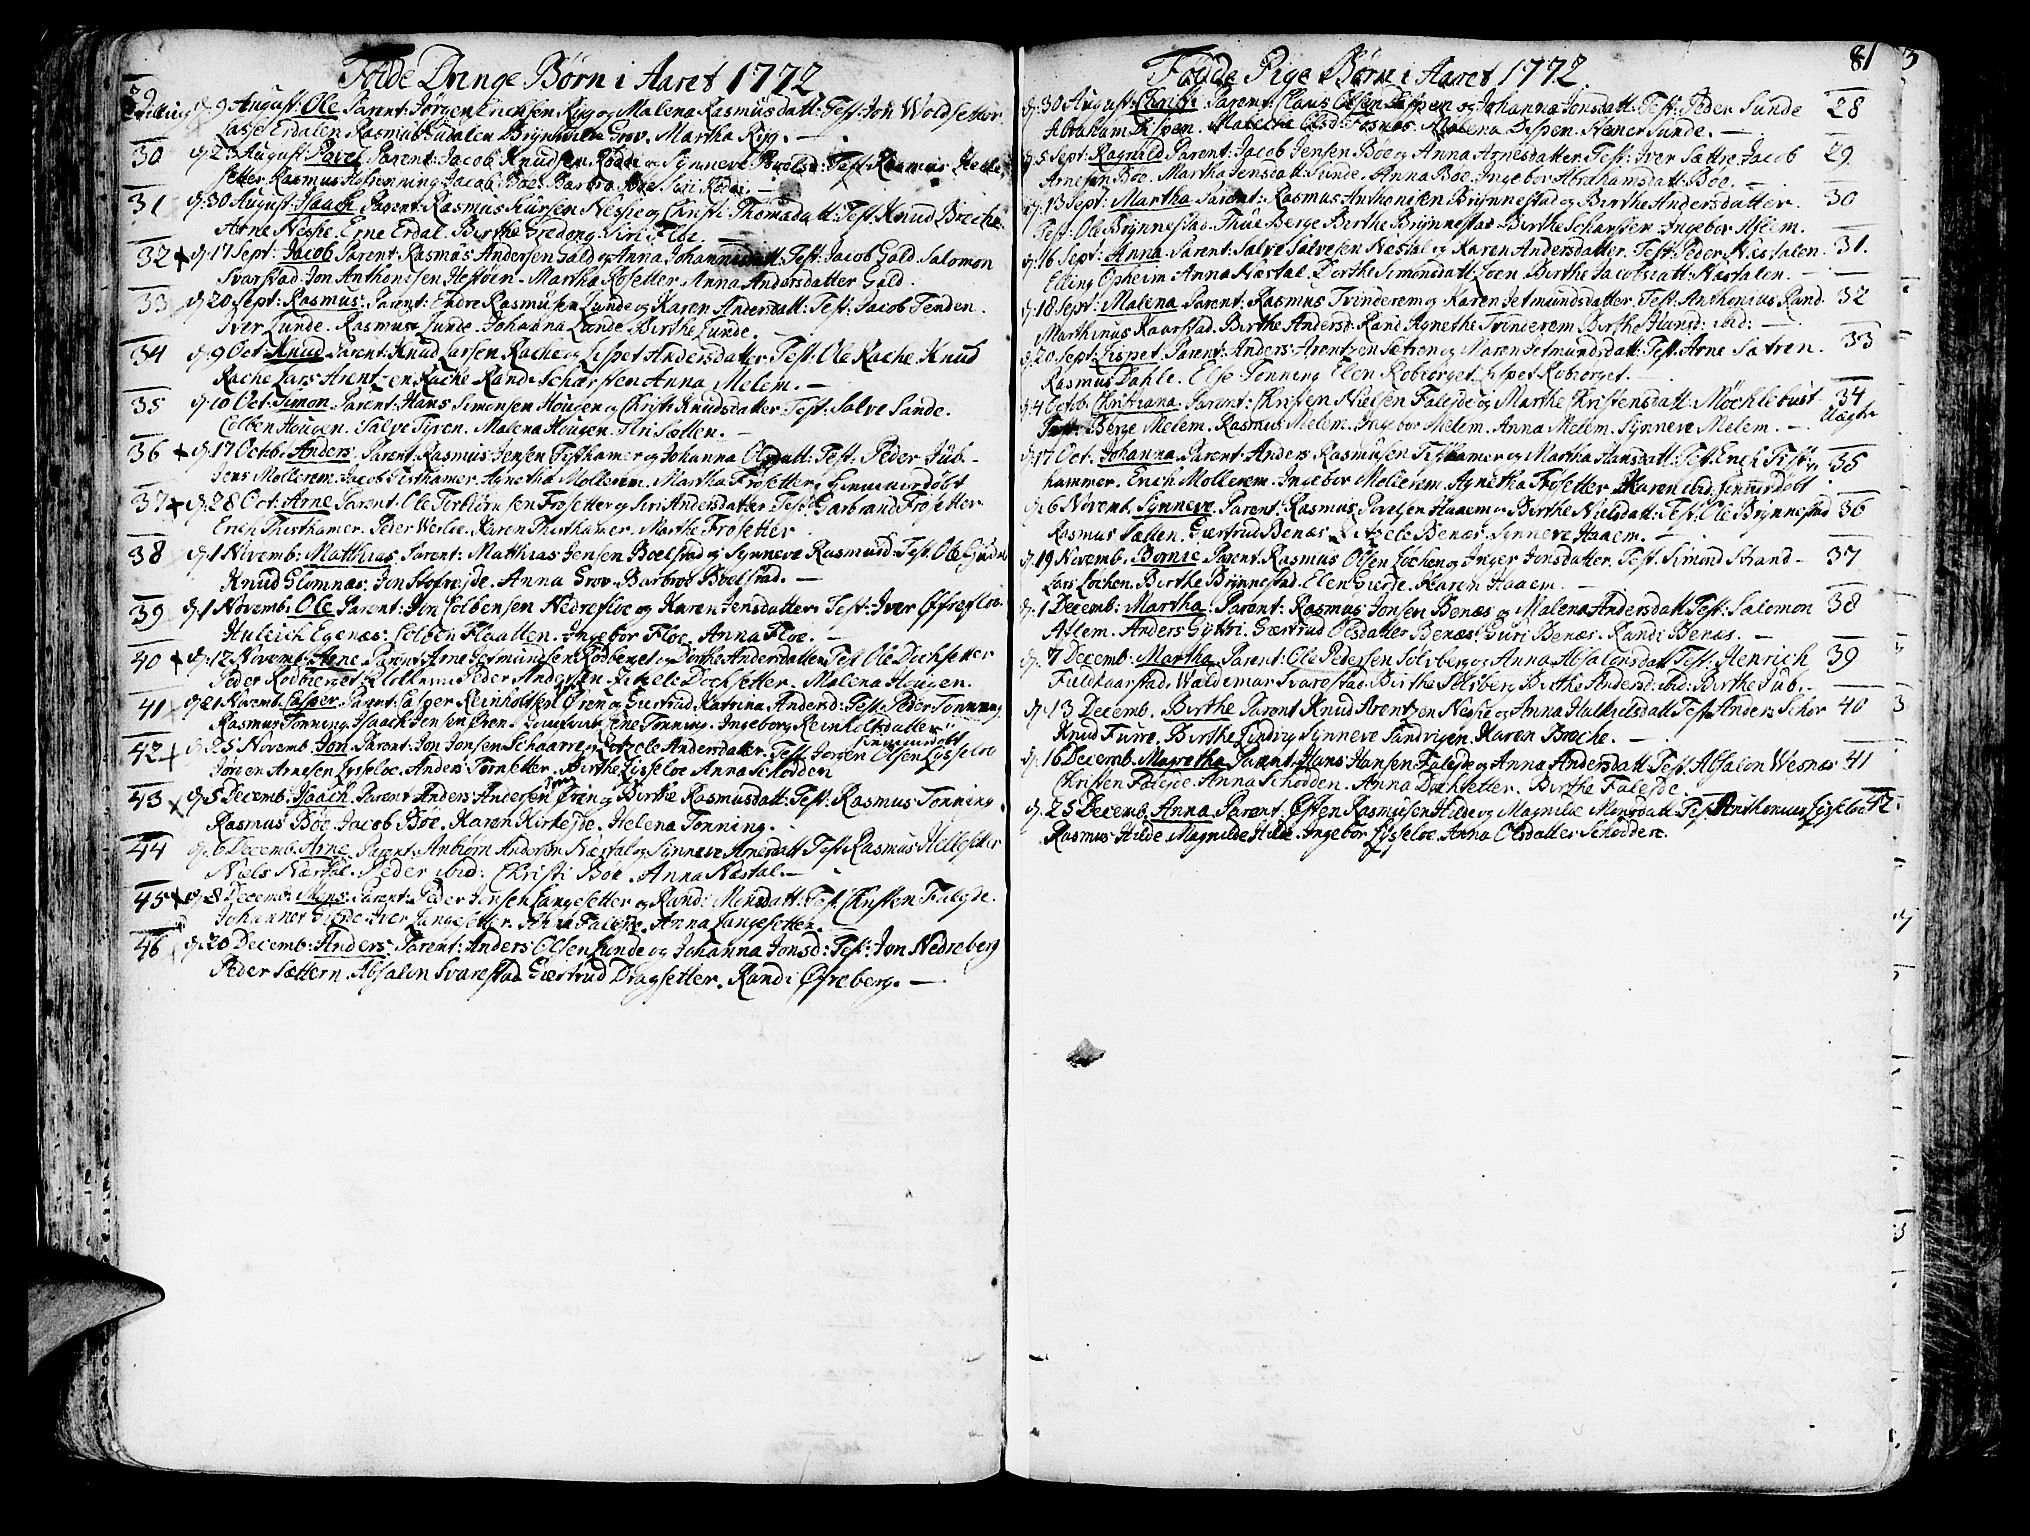 Fødde Drenge Børn i Aaret 1772
d. 9 August: Ole Parent: Jørgen Ericksen Ryg og Malena Rasmusdatt: Test: Jon Woldsetter
Lasse Erdalen Rasmus Erdalen Brynhilla Grov. Martha Ryg. —
30 d. 23 August: Povel Parent: Jacob Knudsen Rødde og Synneve Test: Rasmus
setter Rasmus Jacob Bøe. Barbro Bøe Siri Rødde. —
31 d. 30 August: Isaach Parent: Rasmus Iversen Nesje og Christi Thomædatt: Test: Knud Breche
Arne Nesje. Erne Erdal. Birthe Gredong. Siri Floe.
32 d. 17 Sept: Jacob Parent: Rasmus Andersen Gald og Anna Johannisdatt: Test: Jacob Gald Salomon
Svarstad Jon Anthonesen Hesteven. Martha Rosetter. Anna Andersdatter Gald.
33 d. 20 Sept: Rasmus. Parent: Endre Rasmusen Lunde og Karen Andersdatt: Test: Jacob Tenden.
Iver Lunde. Rasmus Lunde. Johanna Lunde Birthe Lunde.
34 d. 9 Oct: Knud Parent: Knud Larsen Rache og Lispet Andersdatter Test: Ole Rache Knud
Rache Lars Arentzen Rache Randi Scharsten Anna Melem. —
35 d. 10 Oct: Simon. Parent: Hans Simonsen Hougen og Christi Knudsdatter. Test: Salve Sande.
Colben Hougen. Salve Tyren. Malena Hougen. Siri Sætten. —
36 d. 17 Octb: Anders. Parent: Rasmus Jensen Tysthamer og Johanna Olsdatt: Test: Peder Jub.
Jens Mollerem. Jacob Tysthamer. Agnetha Mollerem. Martha Frosetter. himmerdøbt
37 d. 28 Oct: Arne. Parent: Ole Torbiørnsen Frosetter og Siri Andersdatter Test: Garbrand Frosetter
Erich Thisthamer. Peder Weslie. Karen Thisthamer. Marthe Frosetter
38 d. 1 Novemb: Matthias Parent: Matthias Jensen Boelstad og Synneve Rasmusd: Test: Ole
Knud Glomnæs. Jon Anna Grov. Barbroe Boelstad. —
39 d. 1 Novemb: Ole Parent: Jon Colbensen Nedrefloe og Karen Jensdatter. Test: Iver Øfrefloe.
Hulrich Egenæs. Colben Flaatten. Ingebor Floe. Anna Floe. —
40 d. 12 Novemb: Arne. Parent: Arne Jetmundsen Rødberget og Dorthe Andersdatter Test: Ole Dochsetter
Peder Rødberget Peder Andersen Dochsetter. Malena Hougen.
41 d. 21 Novemb: Casper. Parent: Casper Reinholtsen Ören og Giertrud Katrina Andersd: Test: Peder Tonning
Rasmus Tonning. Isaach Jensen Øren. Ene Tonning. Ingeborg Reinholtsdatter
42 d. 25 Novemb: Jon. Parent: Jon Jonsen Schaarre og Andersdatter. Test: Joren Olsen Lysseloe
Jørgen Arnesen Lysseloe. Anders Tornetter. Birthe Lysseloe Anna Schodden
43 d. 5 Decemb: Isaach. Parent: Anders Andersen Øren og Birthe Rasmusdatt: Test: Rasmus Tonning.
Rasmus Bøe. Jacob Bøe. Karen Kirkejde. Helena Tonning.
44 d. 6 Decemb: Arne Parent: Anbiørn Andersen Næstal og Synneve Arnesdatt: Test: Rasmus Hellesetter
Niels Næstal. Peder ibid: Christi Bøe. Anna Næstal. —
45 d. 8 Decemb: Mons: Parent: Peder Jensen Langesetter og Randi Monsdatt: Test: Christen Falejde.
Johannes Gierde. Iver Langesetter. Anna Falejde. Anna Langesetter.
46 d. 20 Decemb: Anders Parent: Anders Olsen Lunde og Johanna Jonsd: Test: Jon Nedreberg
Peder Sættern. Absalon Svarestad Giertrud Dragsetter. Randi Øfreberg. —
81
Fødde Pige Børn i Aaret 1772
d. 30 August: Christi Parent: Claus Olsen Dispen og Johanna Jonsdatt: Test: Peder Sunde 28
Abraham Dispen. Malene Olsd: Fosnæs. Malena Dispen. Stener Sunde. —
d. 5 Sept: Ragnild Parent: Jacob Jensen Bøe og Anna Arnesdatter. Test: Iver Sættre. Jacob 29
Arnesen Bøe. Martha Jensdatt: Sunde. Anna Bøe. Ingebor Abrahamsdatt: Bøe. —
d. 13 Sept: Martha Parent: Rasmus Anthonisen Brynnestad og Birthe Andersdatter. 30
Test: Ole Brynnestad. Thue Berge Birthe Brynnestad Birthe Scharsten. Ingebor Hielm.
d. 16 Sept: Anna Parent: Salve Salvesen Næstal og Karen Andersdatter. Test: Peder Næstalen. 31.
Elling Opheim Anna Næstal. Dorthe Simonsdatt: Loen Birthe Jacobsdatt: Næstalen. —
d. 18 Sept: Malena Parent: Rasmus Tvinderem og Karen Jetmundsdatter. Test: Anthonius Rand. 32
Marthinus Kaarstad. Birthe Andersd: Rand. Agnethe Tvinderem Birthe Hansd: ibid: —
d. 20 Sept: Lispet. Parent: Anders Arentzen Sætren og Maren Jetmundsdatt: Test: Arne Sætren. 33
Rasmus Dahle. Else Tonning Elen Robiorget. Lispet Robiorget. —
d. 4 Octob. Christiana. Parent: Christen Nielsen Falejde og Marthe Christensdatt: Møchlebust 34
Test: Berge Melem. Rasmus Melem. Ingebor Melem. Anna Melem. Synneve Melem. — Uægte
d. 17 Oct. Johanna. Parent: Anders Rasmusen Tisthamer og Martha Hansdatt: Test: Erich Tist- 35
hammer. Erich Mollerem. Ingebor Mollerem. Agnetha Frosetter. Karen ibid. himmerdøbt
d. 6 Novemb. Synneve. Parent: Rasmus Povelsen Haaem og Birthe Nielsdatt: Test: Ole Brynnestad 36
Rasmus Sætten. Giertrud Benæs. Benæs. Synneve Haaem. —
d. 19 Novemb. Bornie. Parent. Rasmus Olsen Lochen og Inger Jonsdatter. Test: Simond Strand- 37
Lars Lochen. Birthe Brynnestad. Elen Gierde. Karen Haaem. —
d. 1 Decemb: Martha: Parent: Rasmus Jonsen Benæs og Malena Andersdatt: Test: Salomon 38
Aflem. Anders Gyttri. Giertrud Olsdatter Benæs. Guri Benæs. Randi Benæs. —
d. 7 Decemb: Martha Parent: Ole Pedersen Solsberg og Anna Absalonsdatt: Test: Henrich 39
Fieldkaarstad. Waldemar Svarestad. Birthe Solsberg Birthe Andersd: ibid: Birthe Jub. —
d. 13 Decemb. Birthe Parent Knud Arentzen Nesje og Anna Halkielsdatt: Test: Anders Schor 40
Knud Furre. Birthe Lindvig Synneve Sandvigen. Karen Breche. —
d. 16 Decemb. Magretha Parent: Hans Hansen Falejde og Anna Andersdatt: Test: Absalon Wesnæs 41
Christen Falejde. Anna Schodden. Anna Dochsetter. Birthe Falejde
d. 25 Decemb. Anna Parent: Østen Rasmusen Hilde og Magnilde Monsdatt: Test: Anthonius Lysseloe 42
Rasmus Hilde Magnilde Hilde. Ingebor Lysseloe. Anna Olsdatter Schodden.